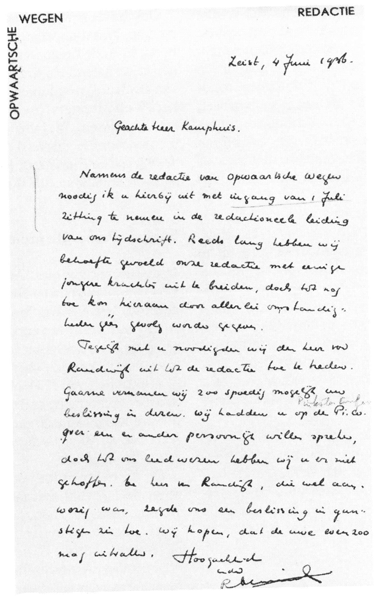 OPWAARTSCHE WEGEN
REDACTIE
Zeist, 4 Juni 1936.
Geachte Heer Kamphuis.
Namens de redactie van Opwaartsche Wegen
noodig ik u hierbij uit met ingang van 1 Juli
zitting te nemen in de redactioneele leiding
van ons tijdschrift. Reeds lang hebben wij
behoefte gevoeld onze redactie met eenige
jongere krachten uit te breiden, doch tot nog
toe kon hieraan door allerlei omstandig-
heden geen gevolg worden gegeven.
Tegelijk met u noodigden wij den heer van
Randwijk uit tot de redactie toe te treden.
Gaarne vernamen wij zoo spoedig mogelijk uw
beslissing in dezen. Wij hadden u op de
over een en ander persoonlijk willen spreken,
doch tot ons leedwezen hebben wij u er niet
getroffen. De heer van Randwijk, die wel aan-
wezig was, zegde ons een beslissing in gun-
stigen zin toe. Wij hopen, dat de uwe even zoo
mag uitvallen. Hoogachtend